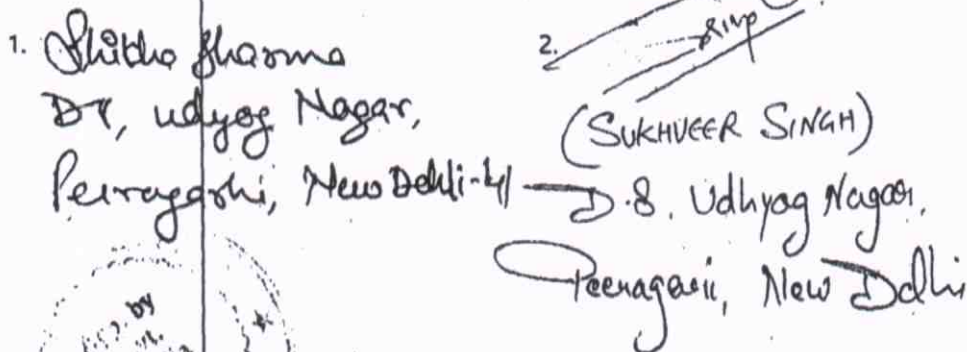 1. Shikha Sharma
D8, Udyog Nagar,
Peeragarhi, New Delhi-41
2.
(SUKHVEER SINGH)
D.8. Udhyog Nagar,
Peeragarii, New Delhi
by